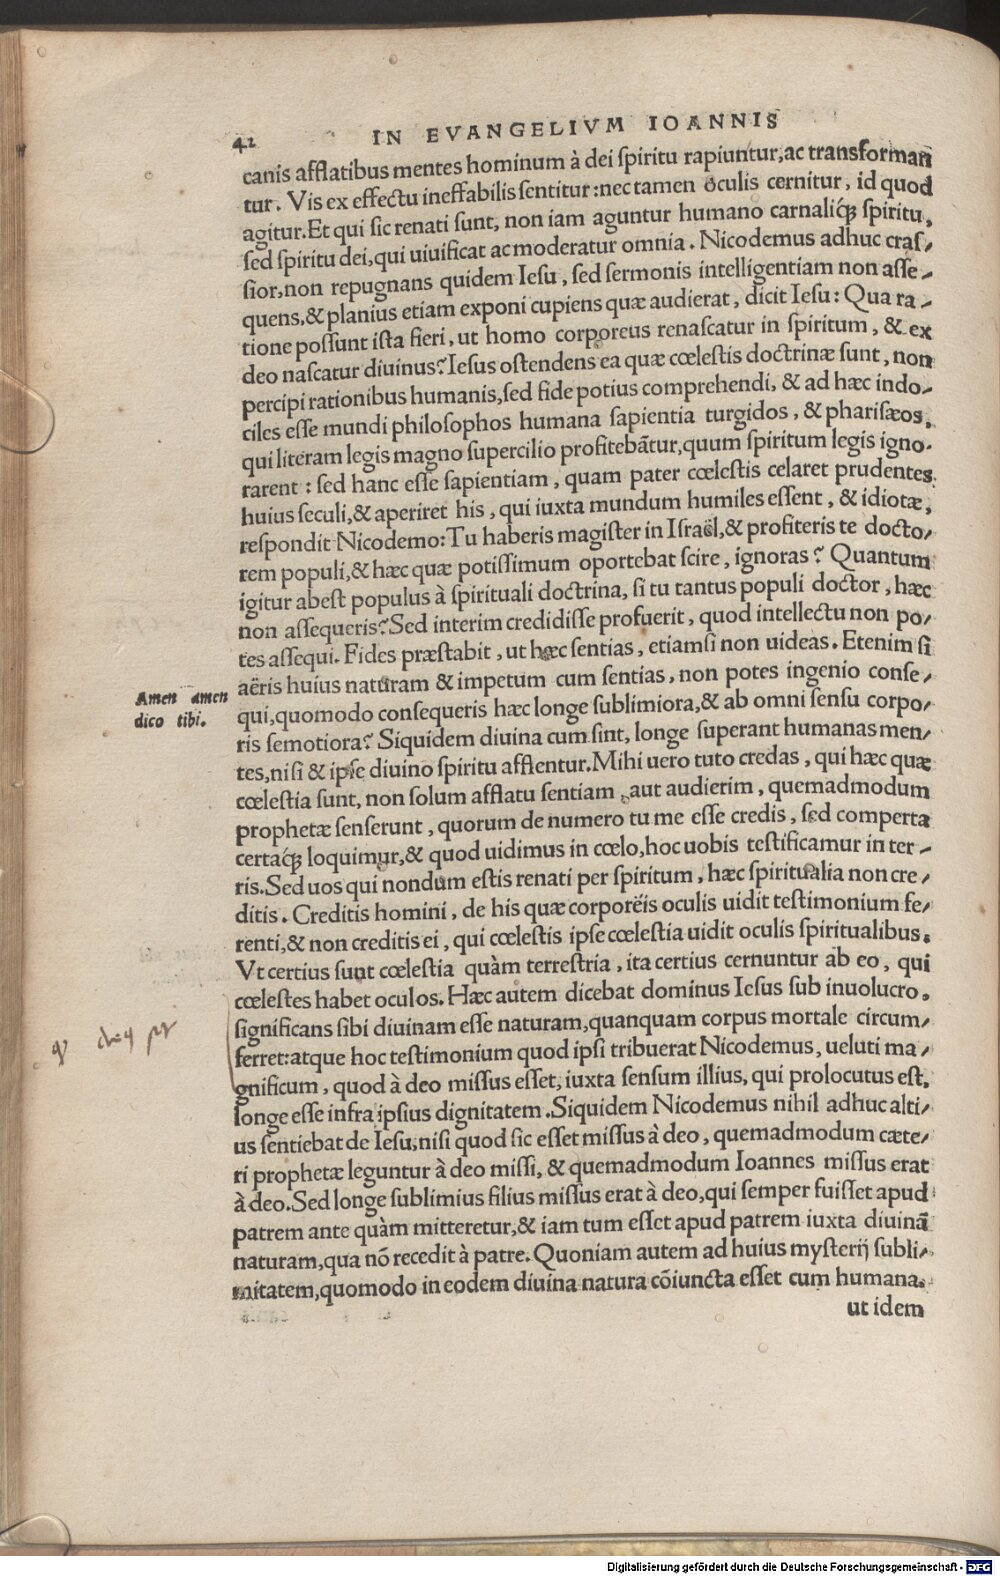 42 IN EVANGELIVM IOANNIS
canis afflatibus mentes hominum à dei spiritu rapiuntur, ac transforman
tur. Vis ex effectu ineffabilis sentitur: nec tamen oculis cernitur, id quod
agitur. Et qui sic renati sunt, non iam aguntur humano carnaliq́; spiritu,
sed spiritu dei, qui uiuificat ac moderatur omnia. Nicodemus adhuc cras/
sior, non repugnans quidem Iesu, sed sermonis intelligentiam non asse/
quens, & planius etiam exponi cupiens quæ audierat, dicit Iesu: Qua ra/
tione possunt ista fieri, ut homo corporeus renascatur in spiritum, & ex
deo nascatur diuinus? Iesus ostendens ea quæ cœlestis doctrinæ sunt, non
percipi rationibus humanis, sed fide potius comprehendi, & ad hæc indo/
ciles esse mundi philosophos humana sapientia turgidos, & pharisæos,
qui literam legis magno supercilio profitebãtur, quum spiritum legis igno/
rarent: sed hanc esse sapientiam, quam pater cœlestis celaret prudentes
huius seculi, & aperiret his, qui iuxta mundum humiles essent, & idiotæ,
respondit Nicodemo: Tu haberis magister in Israël, & profiteris te docto/
rem populi, & hæc quæ potissimum oportebat scire, ignoras? Quantum
igitur abest populus à spirituali doctrina, si tu tantus populi doctor, hæc
non assequeris? Sed interim credidisse profuerit, quod intellectu non po/
tes assequi. Fides præstabit, ut hæc sentias, etiamsi non uideas. Etenim si
aëris huius naturam & impetum cum sentias, non potes ingenio conse/
Amen amen
dico tibi.
qui, quomodo consequeris hæc longe sublimiora, & ab omni sensu corpo/
ris semotiora? Siquidem diuina cum sint, longe superant humanas men/
tes, nisi & ipse diuino spiritu afflentur. Mihi uero tuto credas, qui hæc quæ
cœlestia sunt, non solum afflatu sentiam, aut audierim, quemadmodum
prophetæ senserunt, quorum de numero tu me esse credis, sed comperta
certaq́; loquimur, & quod uidimus in cœlo, hoc uobis testificamur in ter/
ris. Sed uos qui nondum estis renati per spiritum, hæc spiritualia non cre/
ditis. Creditis homini, de his quæ corporëis oculis uidit testimonium fe/
renti, & non creditis ei, qui cœlestis ipse cœlestia uidit oculis spiritualibus.
Vt certius sunt cœlestia quàm terrestria, ita certius cernuntur ab eo, qui
cœlestes habet oculos. Hæc autem dicebat dominus Iesus sub inuolucro,
significans sibi diuinam esse naturam, quanquam corpus mortale circum/
ferret: atque hoc testimonium quod ipsi tribuerat Nicodemus, ueluti ma/
gnificum, quod à deo missus esset, iuxta sensum illius, qui prolocutus est,
longe esse infra ipsius dignitatem. Siquidem Nicodemus nihil adhuc alti/
us sentiebat de Iesu, nisi quod sic esset missus à deo, quemadmodum cæte/
ri prophetæ leguntur à deo missi, & quemadmodum Ioannes missus erat
à deo. Sed longe sublimius filius missus erat à deo, qui semper fuisset apud
patrem ante quàm mitteretur, & iam tum esset apud patrem iuxta diuinã
naturam, qua nõ recedit à patre. Quoniam autem ad huius mysterij subli/
mitatem, quomodo in eodem diuina natura cõiuncta esset cum humana,
ut idem
Digitalisierung gefördert durch die Deutsche Forschungsgemeinschaft - DFG